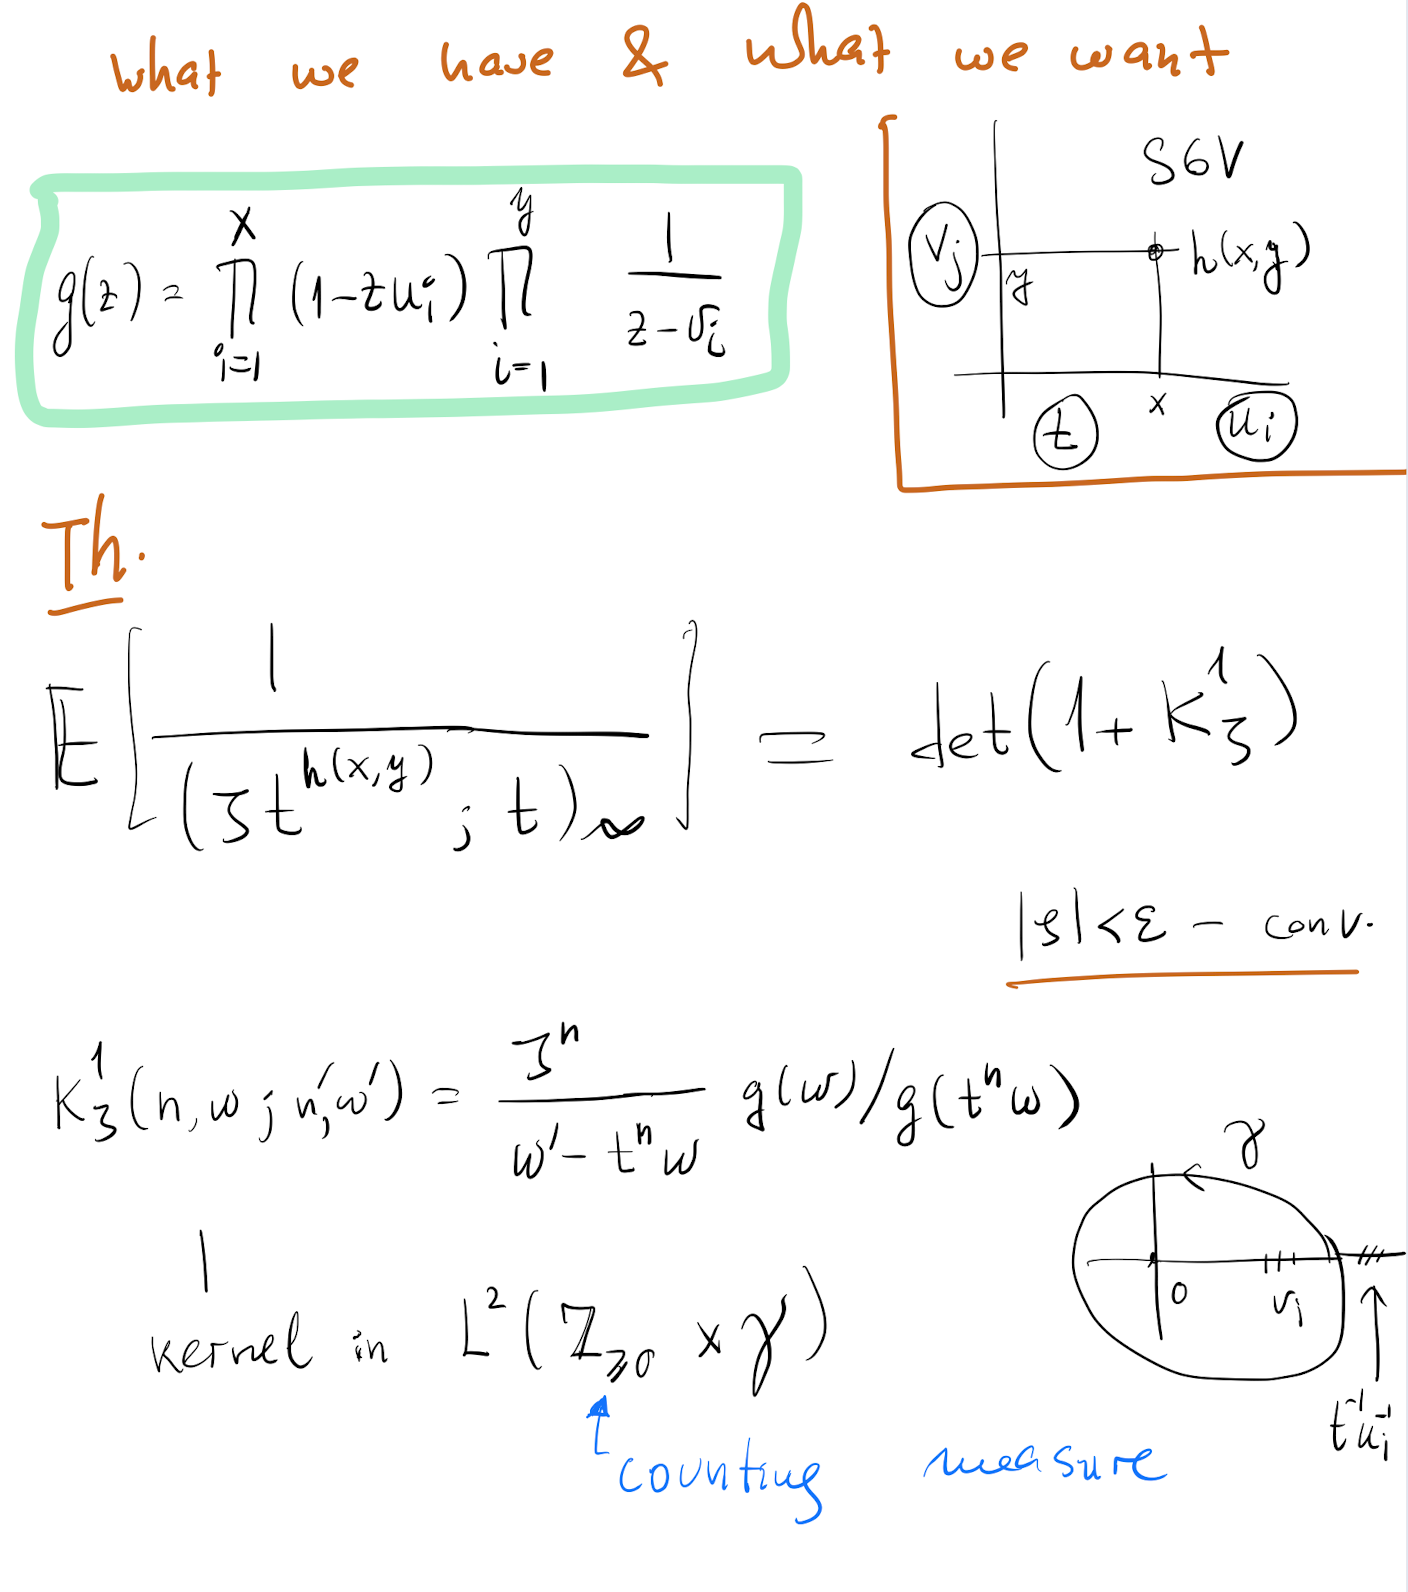 what we have & what we want
g(z) = ∏_{i=1}^{x} (1-zu_i) ∏_{i=1}^{y} 1/(z-v_i)
S6V
v_j
y
h(x,y)
t
x
u_i
Th.
𝔼[1/(ζt^{h(x,y)}; t)_∞] = det(1+K^1_ζ)
|ζ|<ε - conv.
K^1_ζ(n,w; n',w') = ζ^n/(w'-t^n w) g(w)/g(t^n w)
γ
0
v_i
t^{-1}u_i^{-1}
kernel in L^2(ℤ_{≥0} × γ)
counting measure